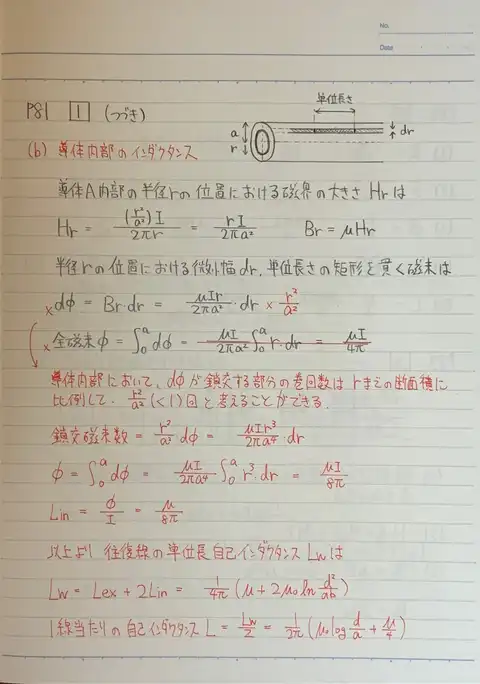 No.
Date
P81 1 (つづき)
単位長さ
a
r
dr
(b) 導体内部のインダクタンス
導体A内部の半径rの位置における磁界の大きさ Hrは
Hr = (r²/a²)I / 2πr = rI / 2πa²  Br = μHr
半径rの位置における微小幅dr, 単位長さの矩形を貫く磁束は
×dφ = Br・dr = μIr / 2πa² ・dr × r²/a²
×全磁束φ = ∫₀ᵃ dφ = μI / 2πa² ∫₀ᵃ r・dr = μI / 4π
導体内部において、dφが鎖交する部分の巻回数はrまでの断面積に
比例して、r²/a² (<1)回と考えることができる.
鎖交磁束数 = r²/a² dφ = μIr³ / 2πa⁴ ・dr
φ = ∫₀ᵃ dφ = μI / 2πa⁴ ∫₀ᵃ r³・dr = μI / 8π
Lin = φ / I = μ / 8π
以上より 往復線の単位長自己インダクタンス Lwは
Lw = Lex + 2Lin = 1/4π (μ + 2μ₀ ln d²/ab)
1線当たりの自己インダクタンス L = Lw/2 = 1/2π (μ₀ log d/a + μ/4)